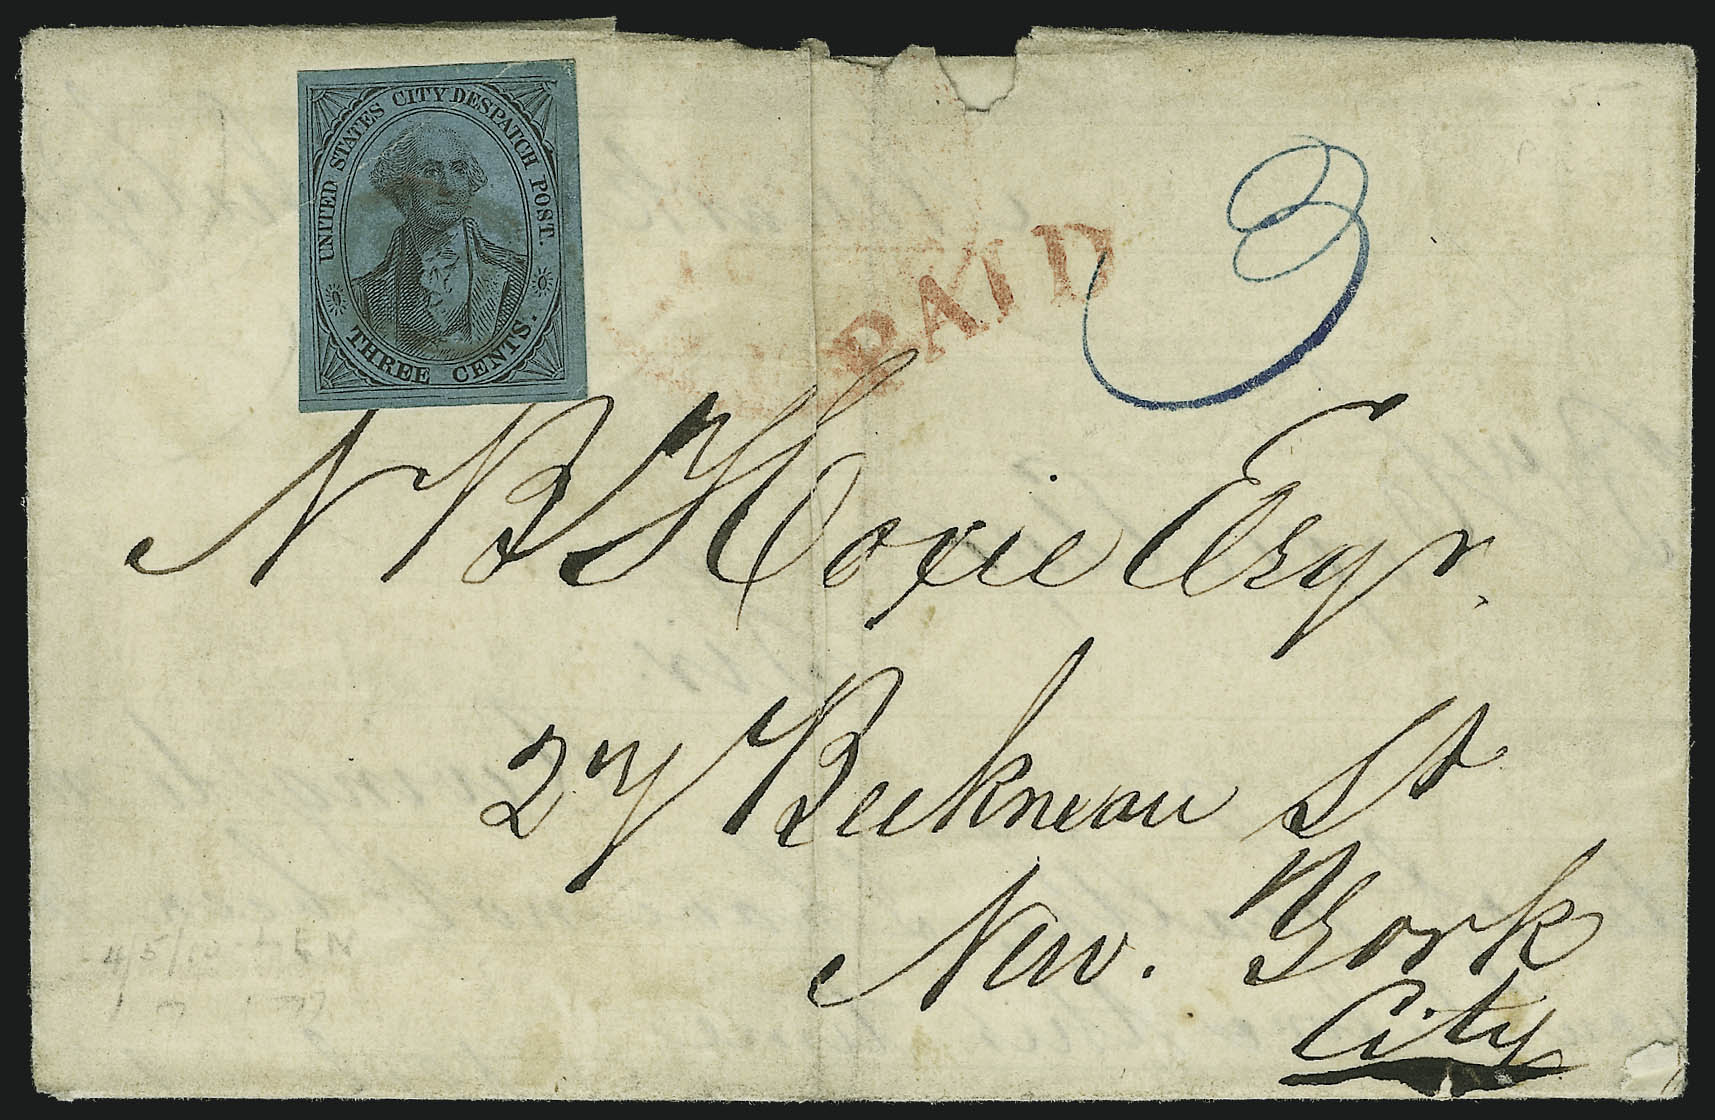 UNITED STATES CITY DESPATCH POST.
THREE CENTS.
PAID
3
N B Hoxie Esqr.
27 Beekman St
New. York
City